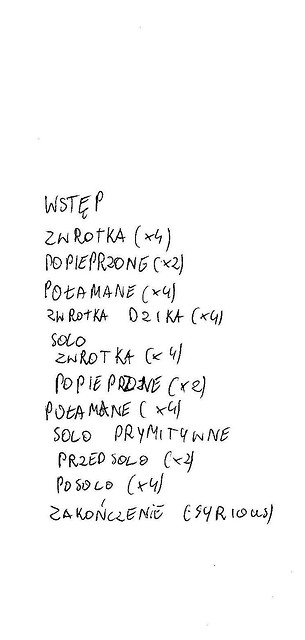 WSTĘP
ZWROTKA (x4)
POPIEPRZONE (x2)
POŁAMANE (x4)
ZWROTKA DZIKA (x4)
SOLO
ZWROTKA (x4)
POPIEPRZONE (x2)
POŁAMANE (x4)
SOLO PRYMITYWNE
PRZEDSOLO (x2)
POSOLO (x4)
ZAKOŃCZENIE (SYRIOUS)